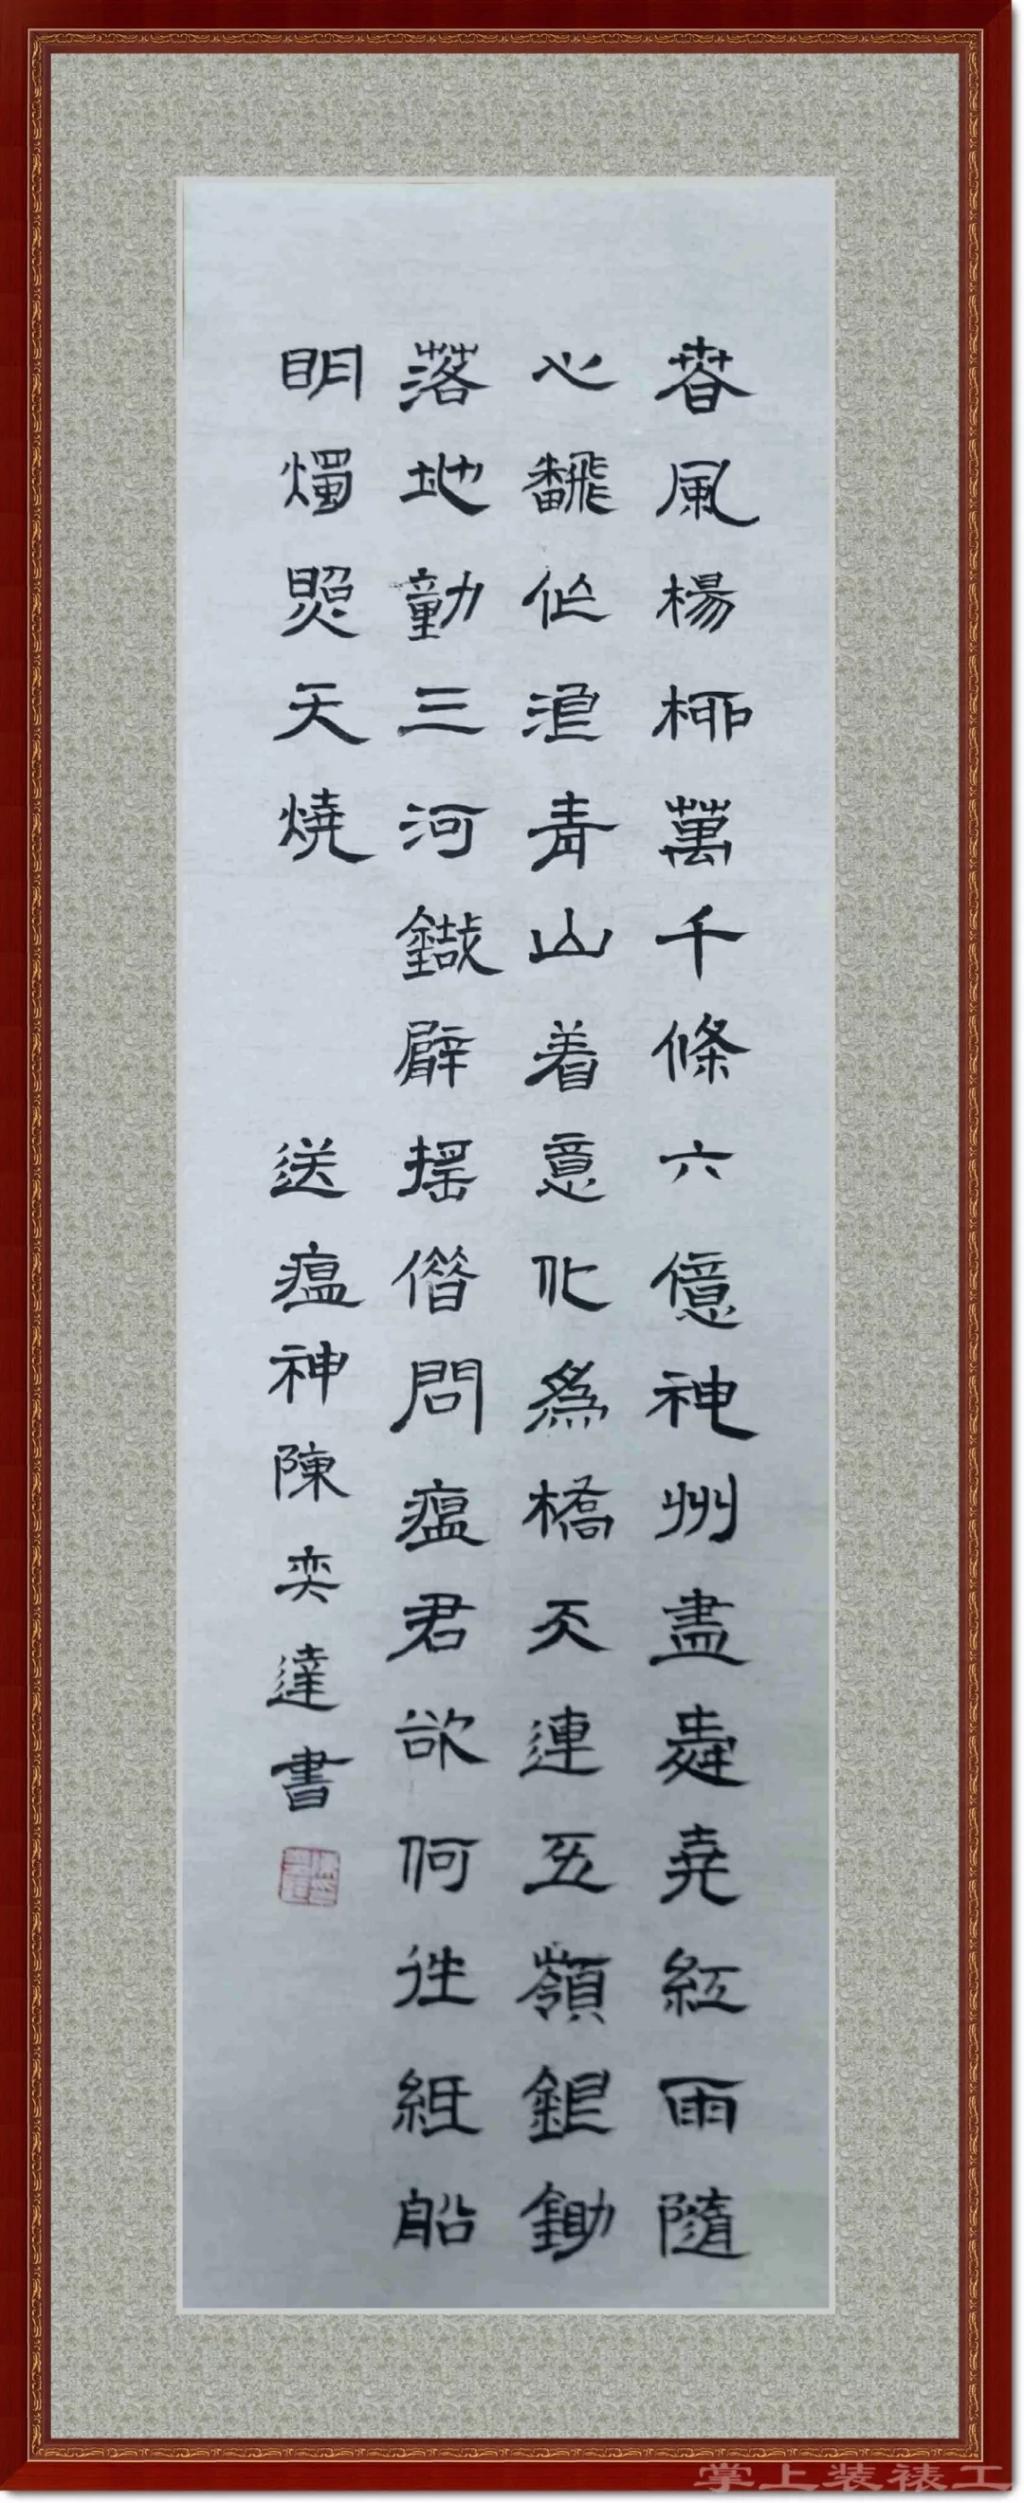 春風楊柳萬千條六億神州盡舜堯紅雨隨
心飜作浪青山着意化爲橋天連五嶺銀鋤
落地動三河鐵臂摇借問瘟君欲何往紙船
明燭照天燒 送瘟神陳奕達書
掌上装裱工